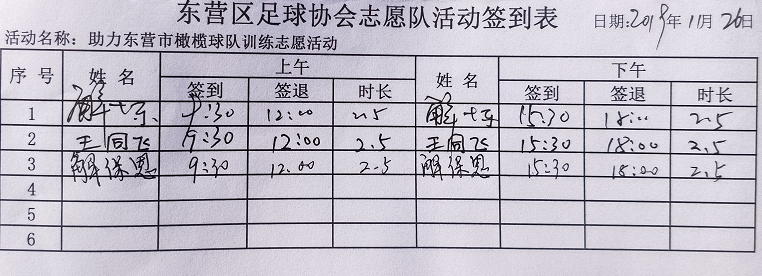 东营区足球协会志愿队活动签到表 日期:2019年11月26日
活动名称：助力东营市橄榄球队训练志愿活动
序号 姓名 上午 姓名 下午
签到 签退 时长 签到 签退 时长
1 解 9:30 12:00 2.5 解 15:30 18:00 2.5
2 王同飞 9:30 12:00 2.5 王同飞 15:30 18:00 2.5
3 解保恩 9:30 12:00 2.5 解保恩 15:30 18:00 2.5
4
5
6